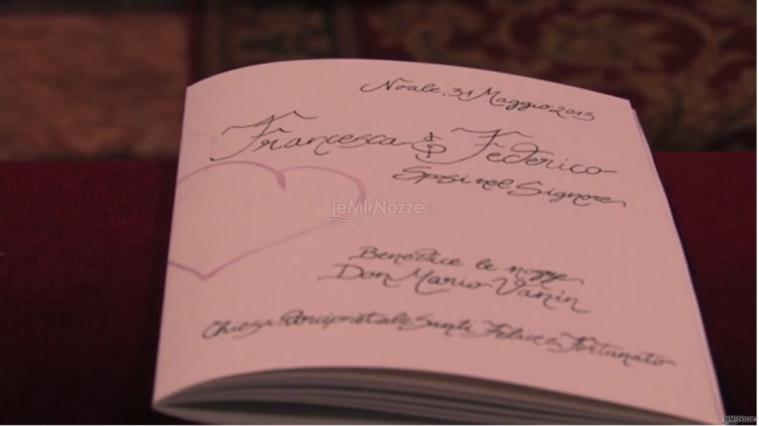 Noale, 31 Maggio 2013
Francesca & Federico
Sposi nel Signore
LeMieNozze.it
Benedice le nozze
Don Mario Vanin
Chiesa Arcipretale Santi Felice e Fortunato
LeMieNozze.it